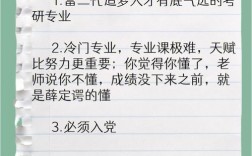 1.富二代追梦人才有底气选的考
研专业
2.冷门专业，专业课极难，天赋
比努力更重要；你觉得你懂了，老
师说你不懂，成绩没下来之前，就
是薛定谔的懂
3.必须入党